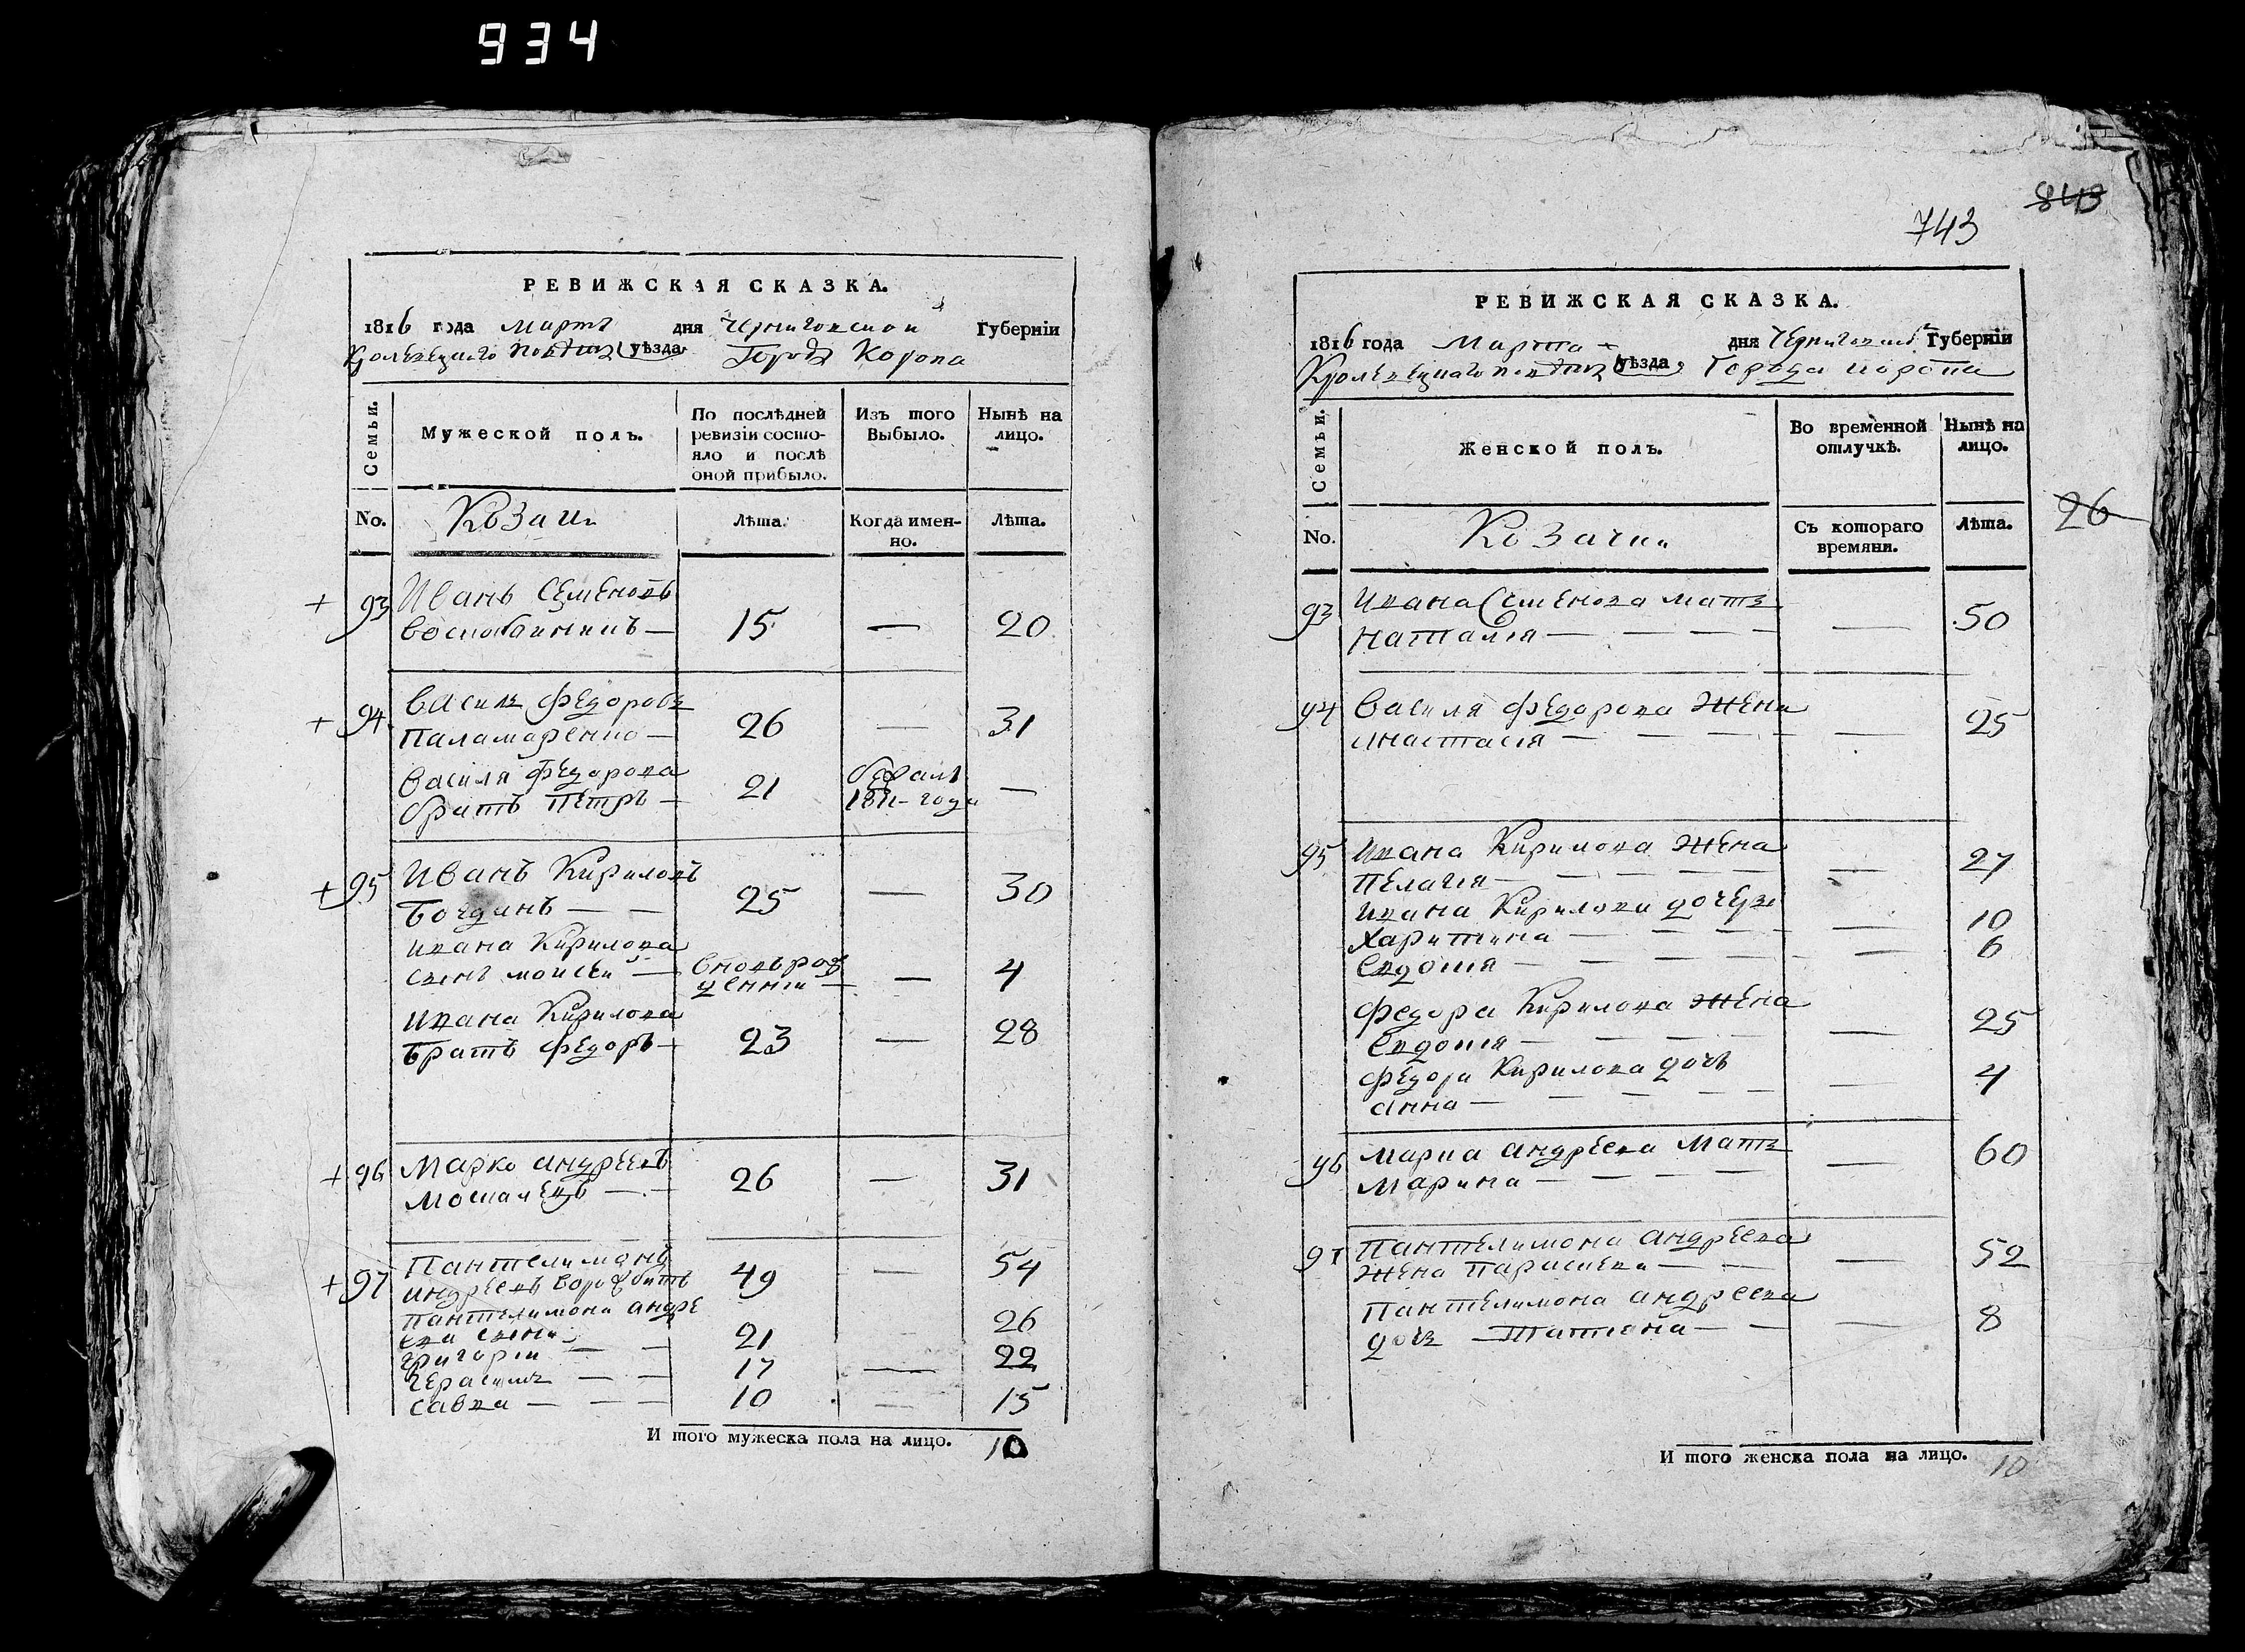 934
РЕВИЖСКАЯ СКАЗКА.
1816 года Мартъ дня Черниговской Губерніи
Кролевецкого повѣта уѣзда Города Коропа
Семьи.
Мужеской полъ.
По послѣдней ревизіи состояло и послѣ оной прибыло.
Изъ того Выбыло.
Нынѣ на лицо.
No. Козаки Лѣта. Когда именно. Лѣта.
+ 93 Иванъ Семеновъ
— 15 — 20
+ 94 Василь Федоровъ
Паламаренко — 26 — 31
Василя Федорова
братъ Петръ — 21 1811 года —
+ 95 Иванъ Кириловъ
Богданъ — — 25 — 30
Ивана Кирилова
сынъ Моисей — вновьрож
денній — — 4
Ивана Кирилова
братъ Федоръ — 23 — 28
+ 96 Марко Андреевъ
— — 26 — 31
+ 97 Пантелимонъ
Андреевъ 49 — 54
Пантелимона Андре
ева сыны
Григорій — — 21 — 26
Герасимъ — — 17 — 22
Савка — — — 10 — 15
И того мужеска пола на лицо. 10
843
743
РЕВИЖСКАЯ СКАЗКА.
1816 года Марта дня Черниговской Губерніи
Кролевецкаго повѣта уѣзда Города Коропа
Семьи.
Женской полъ.
Во временной отлучкѣ.
Нынѣ на лицо.
26
No. Козачки Съ котораго времяни. Лѣта.
93 Ивана Семенова мать
Наталія — — — — — 50
94 Василя Федорова жена
Анастасія — — — — — 25
95 Ивана Кирилова жена
Пелагія — — — — — — 27
Ивана Кирилова дочери
Харитина — — — — — 10
Евдокія — — — — — — 6
Федора Кирилова жена
Евдокія — — — — — 25
Федора Кирилова дочь
Анна — — — — — — 4
96 Марка Андреева мать
Марина — — — — — 60
97 Пантелимона Андреева
жена Параскева — — — 52
Пантелимона Андреева
дочь Татіана — — — 8
И того женска пола на лицо. 10